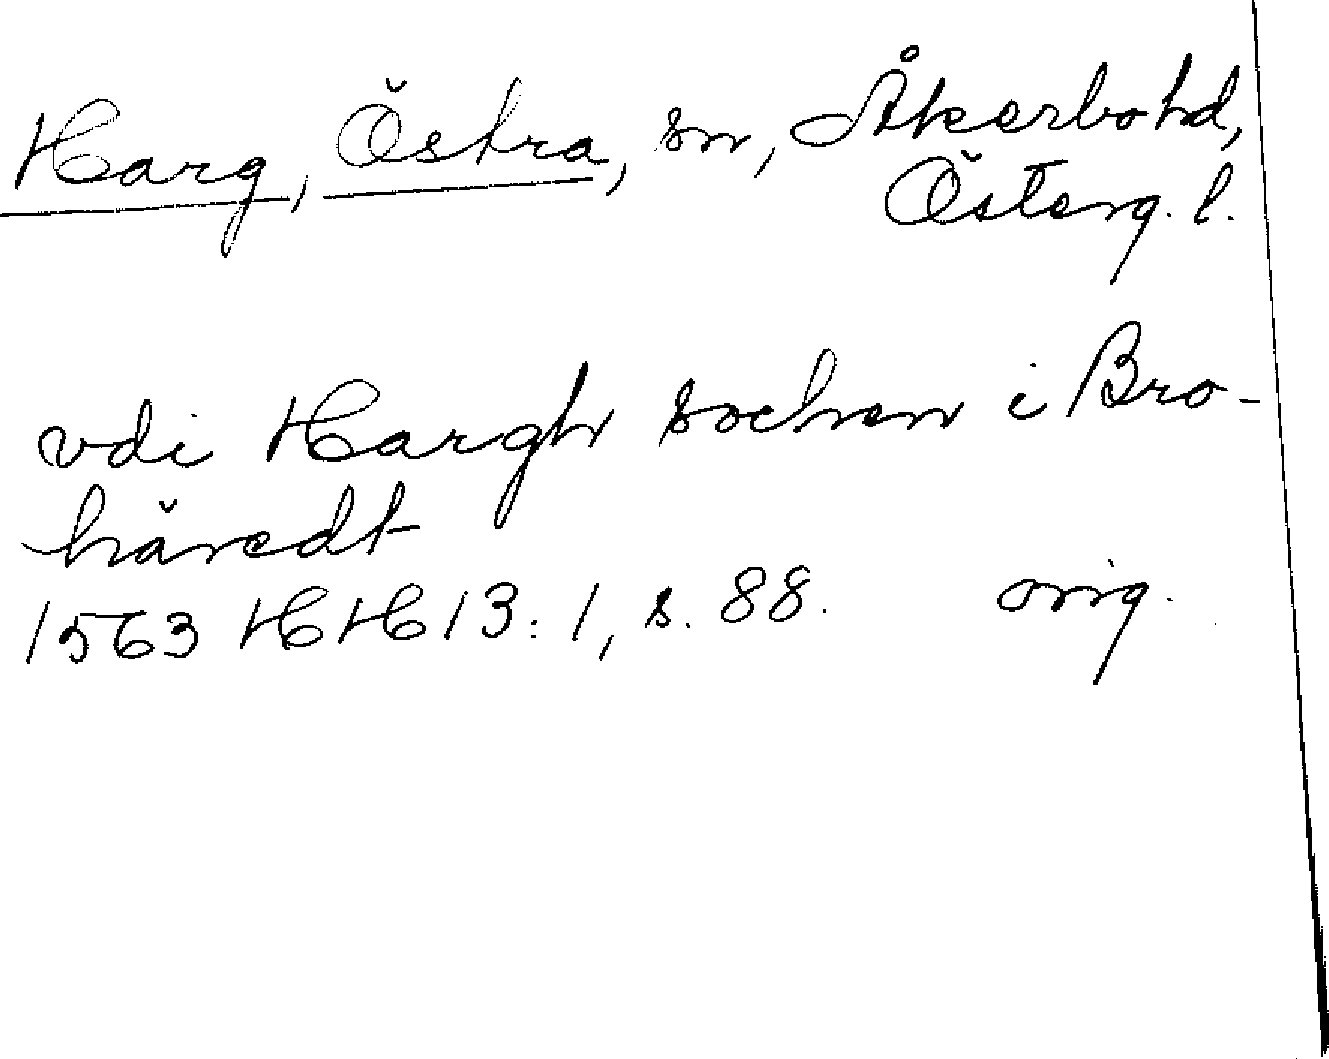 Harg, Östra, sn, Åkerbo hd,
Österg. l.
vdi Hargh sochen i Bro-
häredt
1563 HH 13:1, s. 88. orig.